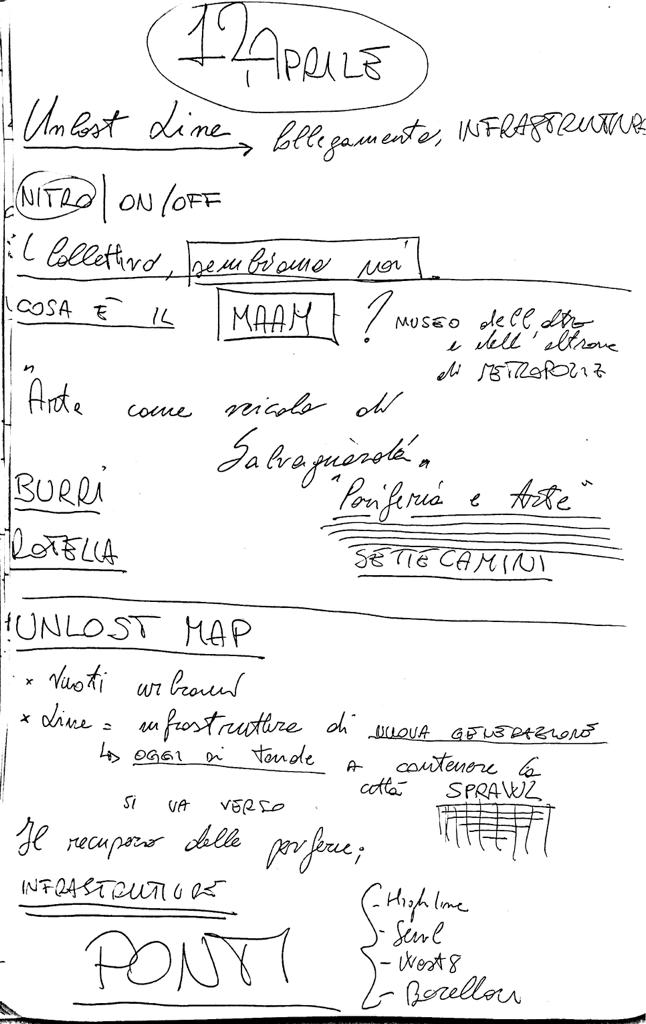 12 APRILE
Unlost Line → Collegamento, INFRASTRUTTURE
NITRO | ON/OFF
Collettivo, sembiamo noi
COSA È IL MAAM ? MUSEO dell'altro
e dell'altrove
di METROPOLIZ
"Arte come veicolo di
Salvaguardia"
BURRI
"Periferia e Arte"
ROTELLA
SETTECAMINI
UNLOST MAP
* Vuoti urbani
* Line = infrastrutture di NUOVA GENERAZIONE
↳ OGGI si tende a contenere la
città SPRAWL
SI VA VERSO
Il recupero delle periferie;
INFRASTRUTTURE
- High line
- Seul
- West 8
PONTI